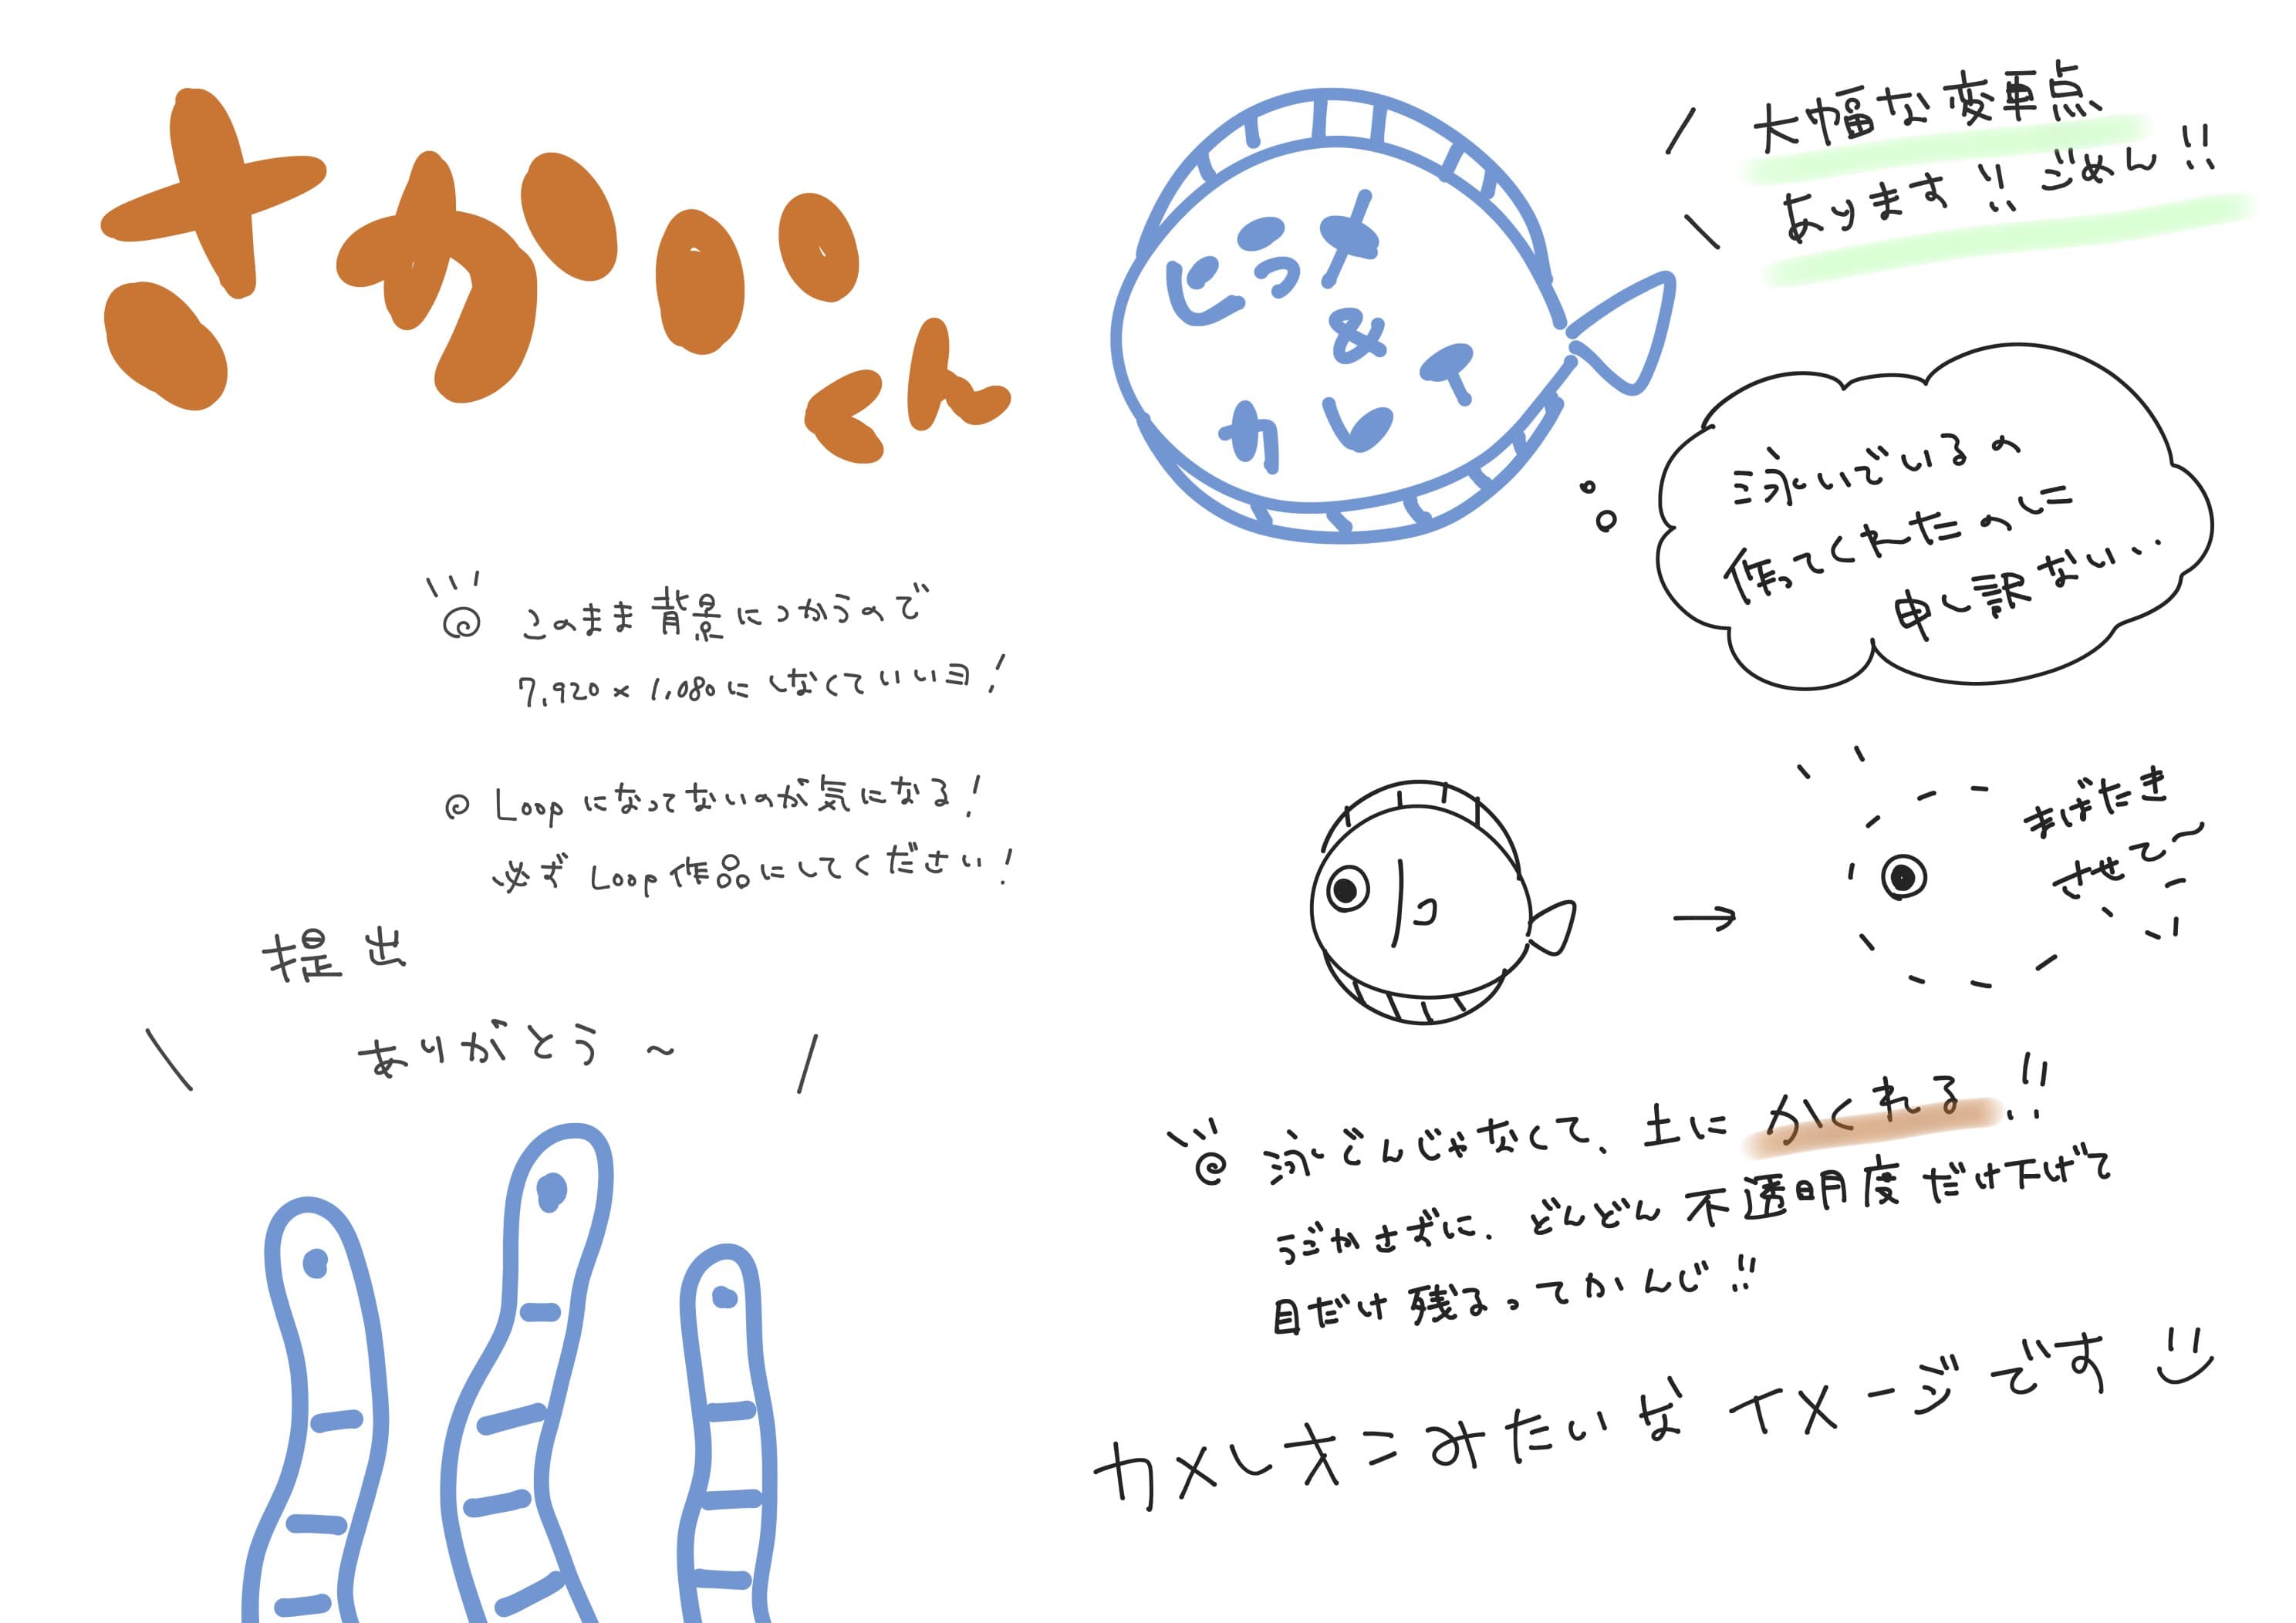 さか
くん
このまま背景につかうので
7,920×1,080にしなくていいヨ!
Loopになってないのが気になる!
必ずLoop作品にしてください!
提出
ありがとう〜
ヒラメ
&
カレイ
大幅な変更点
あります!!ごめん!!
泳いでいるの
作ってくれたのに
申し訳ない..
まばたき
させて〜
泳ぐんじゃなくて、土にかくれる!!
うごかさずに、どんどん不透明度だけ下げて
目だけ残るってかんじ!!
カメレオンみたいなイメージです